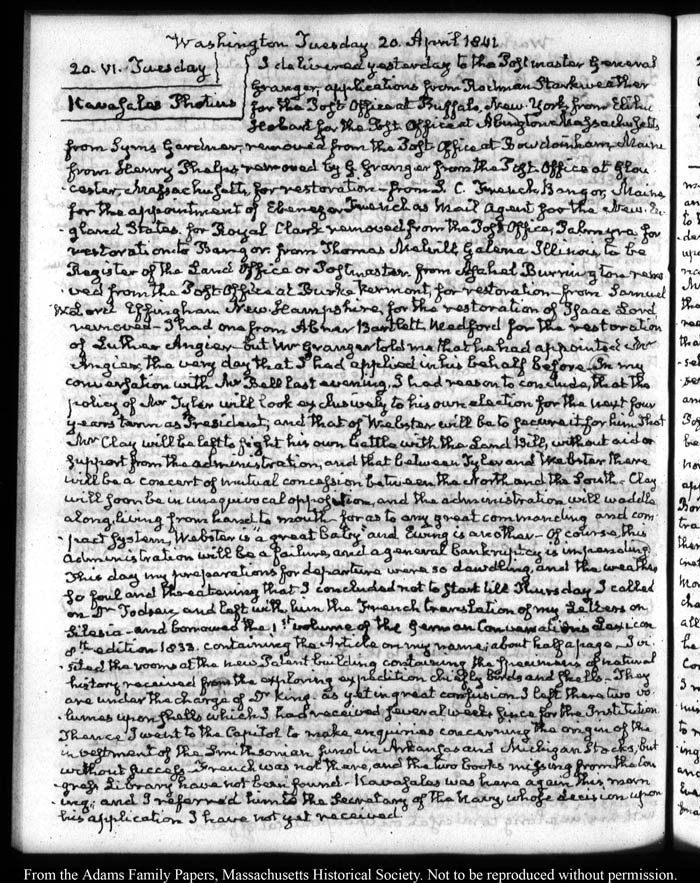 Washington Tuesday 20. April 1841
20. VI. Tuesday
Kavasales Photius
I delivered yesterday to the Postmaster General
Granger, applications from Rodman Starkweather
for the Post Office at Buffalo, New-York, from Elihu
Hobart for the Post-Office at Abington Massachusetts
from Syms Gardner, removed from the Post-Office at Bowdoinham, Maine
from Henry Phelps, removed by G. Granger from the Post-Office at Glou
cester, Massachusetts, for restoration—from C. French Bangor, Maine
for the appointment of Ebenezer French as Mail Agent for the New-En
gland States. for Royal Clark removed from the Post-Office, Palmyra for
restoration to Bangor. from Thomas Melvill, Galena Illinois to be
Register of the Land Office or Postmaster. from Asahel Burrington remo
ved from the Post-Office at Burke Vermont, for restoration—from Samuel
Lord Effingham New-Hampshire, for the restoration of Isaac Lord
removed—I had one from Abner Bartlett, Medford for the restoration
of Luther Angier—but Mr Granger told me that he had appointed Mr
Angier, the very day that I had applied in his behalf before. In my
conversation with Mr Bell last evening, I had reason to conclude, that the
policy of Mr Tyler will look exclusively to his own election for the next four
years term as President, and that of Webster will be to secure it for him. That
Mr Clay will be left to fight his own battle with the Land Bill, without aid or
support from the administration, and that between Tyler and Webster there
will be a concert of mutual concession between the North and the South—Clay
will soon be in unequivocal opposition, and the administration will waddle
along, living from hand to mouth—for as to any great commanding and com
pact system, Webster is a great Baby and Ewing is another—Of course, this
administration will be a failure, and a general bankruptcy is impending.
This day my preparations for departure were so dawdling, and the weather
so foul and threatening that I concluded not to start till Thursday. I called
on Dr Todsen, and left with him the French translation of my Letters on
Silesia—and borrowed the 1st volume of the German Conversations Lexicon
8th edition 1833. containing the Article on my name; about half a page—I vi
sited the rooms at the new Patent building containing the specimens of natural
history received from the exploring expedition chiefly birds and shells—They
are under the charge of Dr King. as yet in great confusion. I left there two vo
lumes upon shells which I had received several weeks since for the Institution
Thence I went to the Capitol to make enquiries concerning the origin of the
investment of the Smithsonian fund in Arkansas and Michigan Stocks, but
without success. French was not there, and the two books missing from the Con
gress Library have not been found—Kavasales was here again this morn
ing; and I referred him to the Secretary of the Navy, whose decision upon
his application I have not yet received
From the Adams Family Papers, Massachusetts Historical Society. Not to be reproduced without permission.